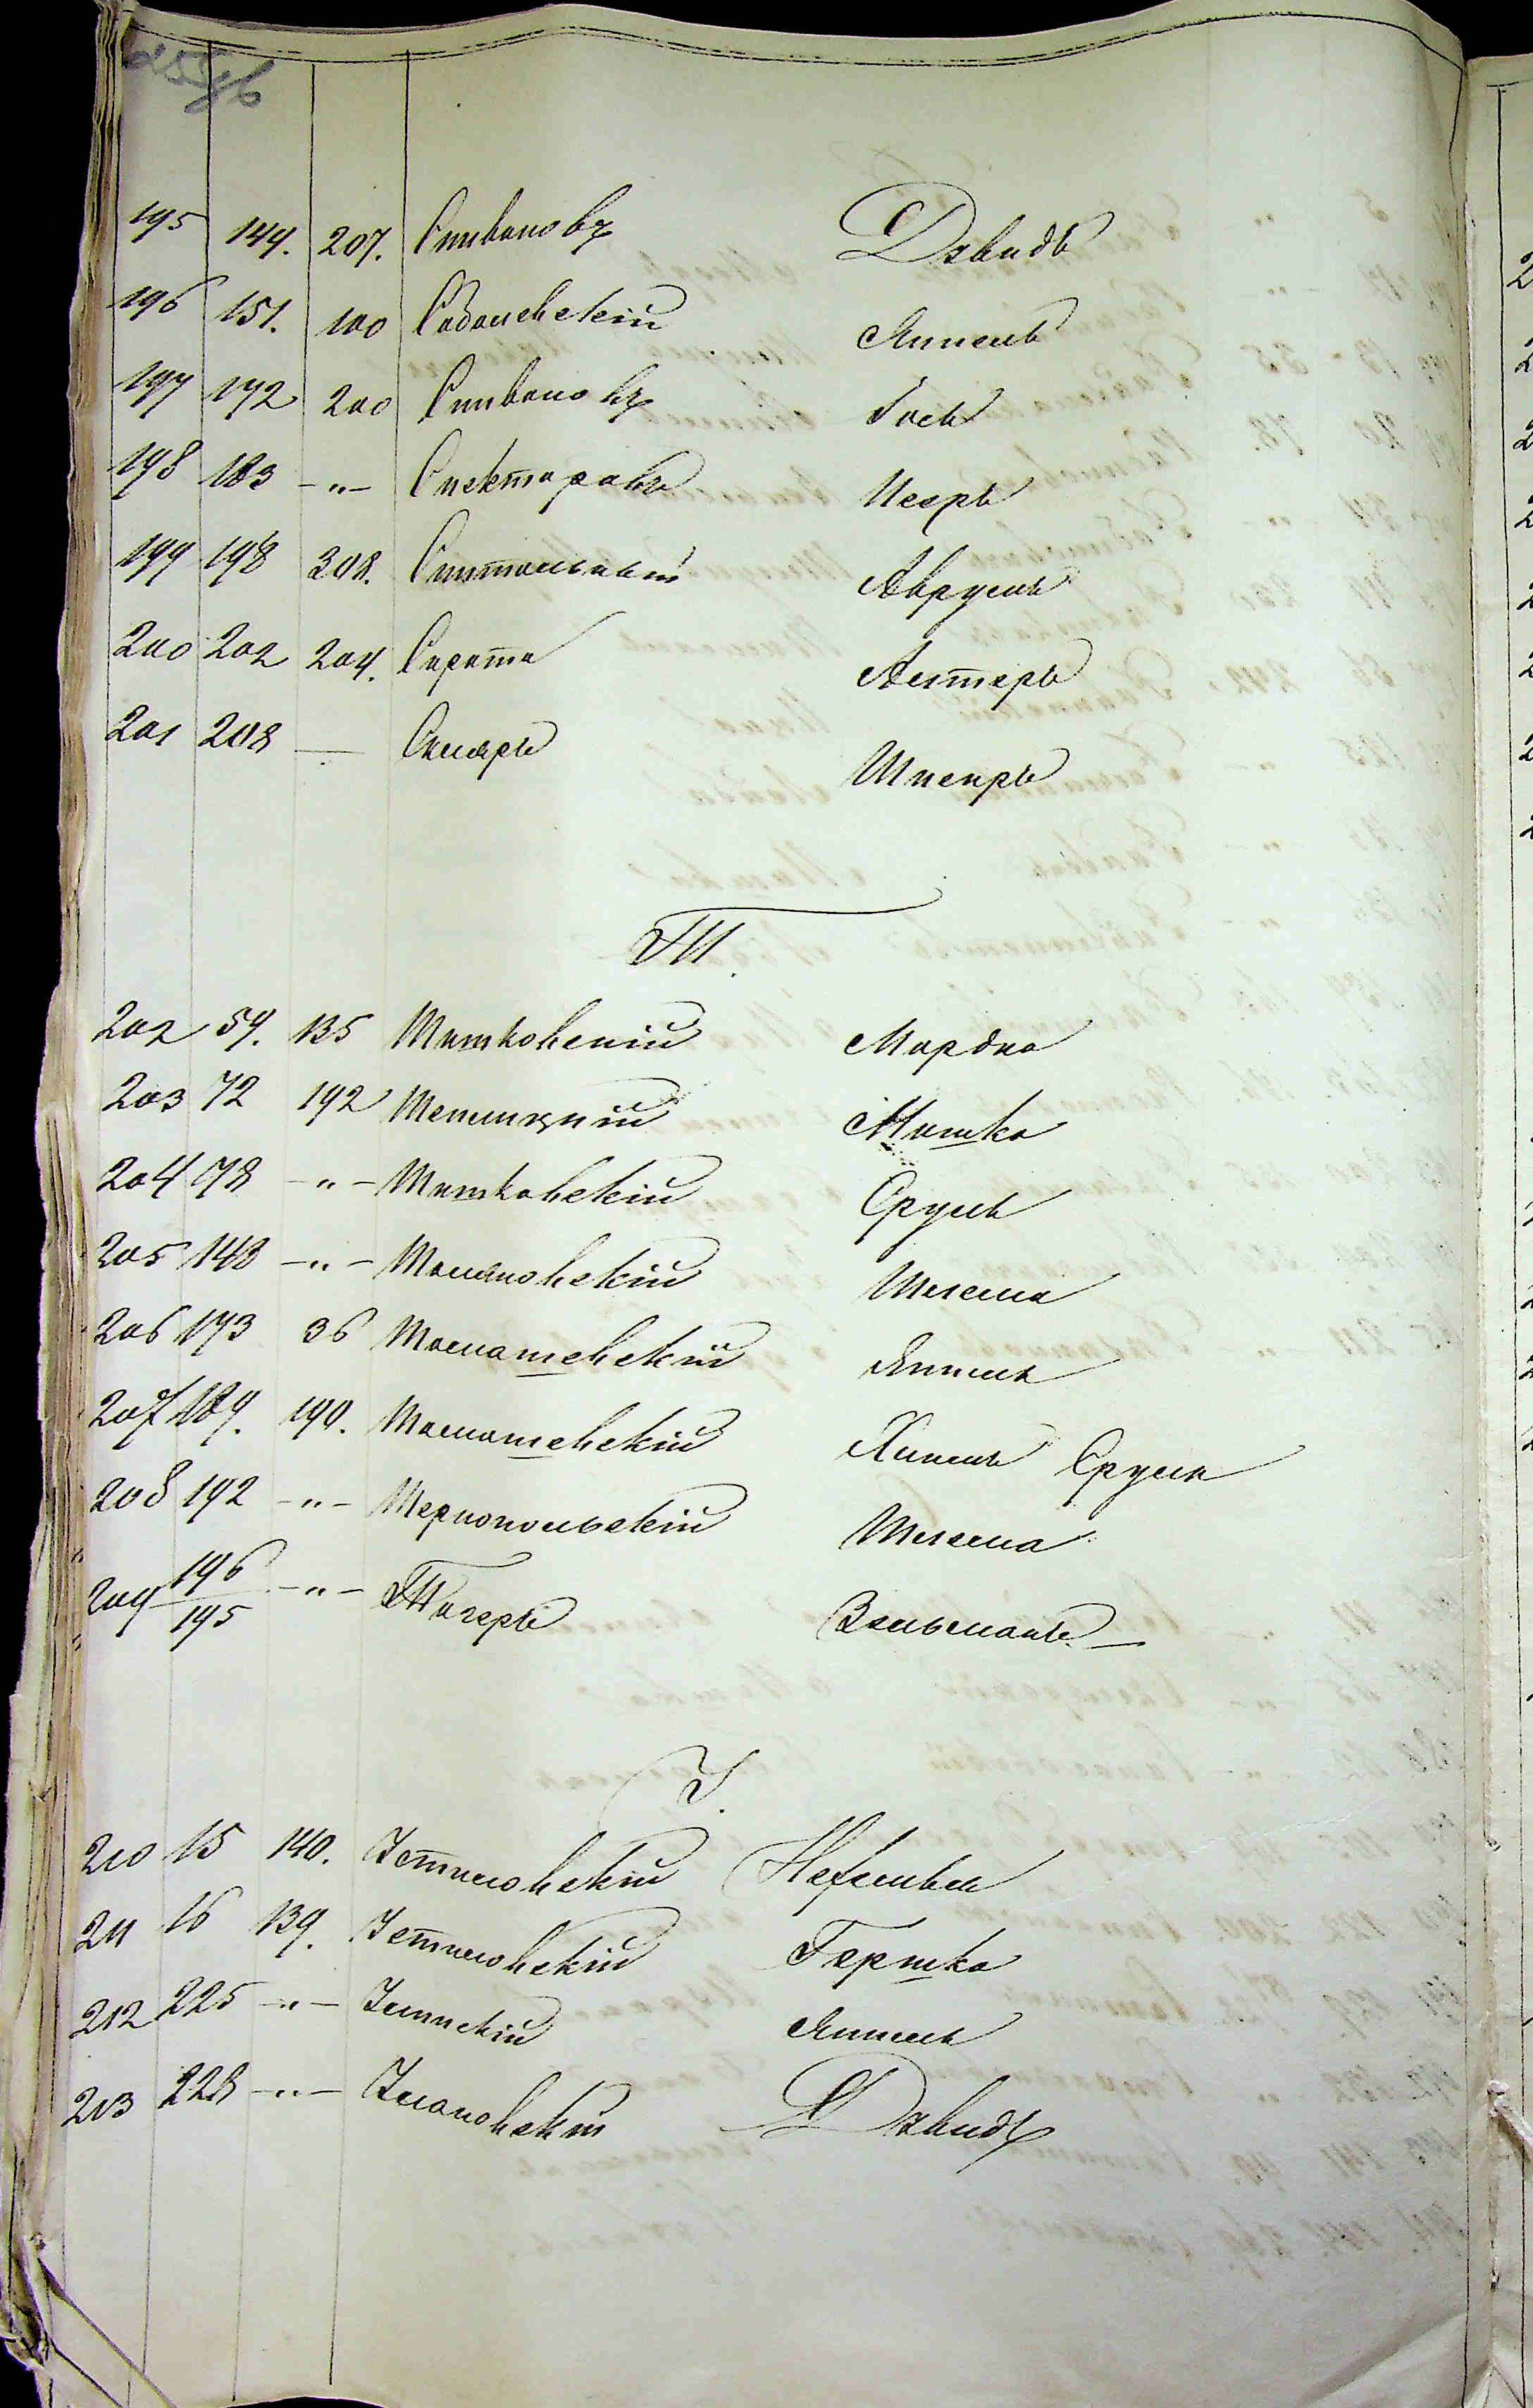 195 144. 207. Сливановъ Давидъ
196 151. 100 Соболевскій Янкель
197 172 200 Сливановъ Іось
198 183 -"- Спекторовъ Исеръ
199 198 308. Спитальный Аврумъ
200 202 204. Сирота Лейзеръ
201 208 — Скляръ Шпеиръ
Т.
202 59. 135 Титковскій Мордко
203 72 192 Теплицкій Мошко
204 78 -"- Титковскій Сруль
205 148 -"- Томановскій Шлема
206 173 36 Томашевскій Янкель
207 189. 190. Томашевскій Хаимъ Сруль
208 192 -"- Тернопольскій Шлема
209 196/195 -"- Тагеръ Зельманъ
У.
210 15 140. Устиновскій Нехемья
211 16 139. Устиновскій Гершко
212 225 -"- Уманскій Янкель
213 228 -"- Улановскій Давидъ